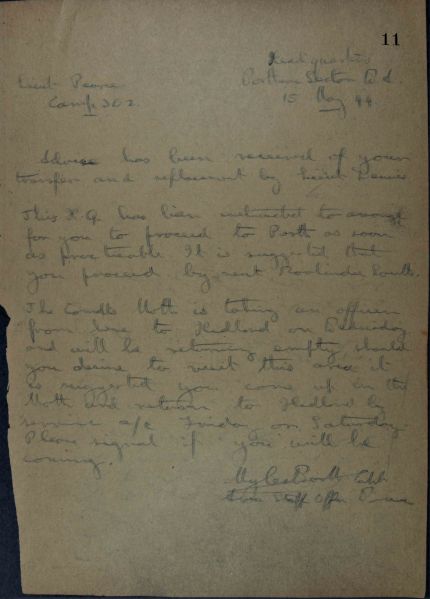 11
Headquarters
Lieut Pearce
Northern Sector
Camp 202.
15 May 44
Advice has been received of your
transfer and replacement by Lieut
This H.Q. has been instructed to arrange
for you to proceed to Perth as soon
as practicable It is suggested that
you proceed by next South.
The Moth is taking an officer
from here to Hedland on
and will be returning empty, should
you desire to visit this area it
is suggested you come up in the
Moth and return to Hedland by
service a/c Friday or Saturday
Please signal if you will be
coming.
Capt
Staff Offr